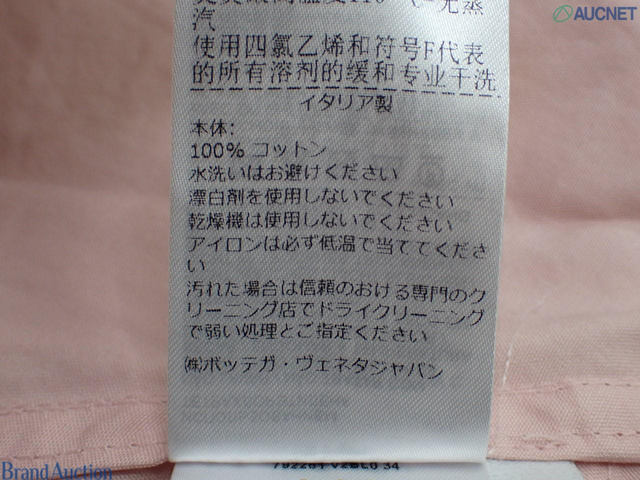 AUCNET
汽
使用四氯乙烯和符号F代表
的所有溶剂的缓和专业干洗
イタリア製
本体:
100% コットン
水洗いはお避けください
漂白剤を使用しないでください
乾燥機は使用しないでください
アイロンは必ず低温で当ててくださ
い
汚れた場合は信頼のおける専門のク
リーニング店でドライクリーニング
で弱い処理とご指定ください
㈱ボッテガ・ヴェネタジャパン
Brand Auction